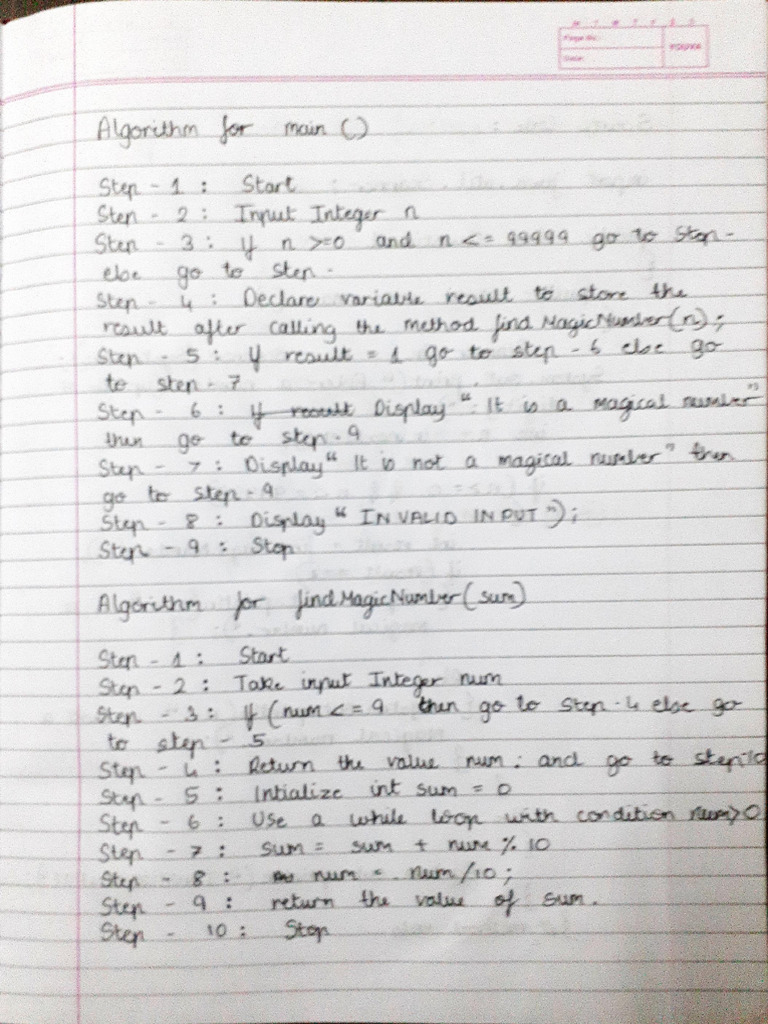 M T W T F S S
Page No.:
Date:
YOUVA
Algorithm for main ()
Step - 1 : Start
Step - 2 : Input Integer n
Step - 3 : If n >=0 and n <= 99999 go to Step -
else go to step -
Step - 4 : Declare variable result to store the
result after calling the method findMagicNumber(n);
Step - 5 : If result = 1 go to step - 6 else go
to step - 7
Step - 6 : If result Display “ It is a magical number”
then go to step - 9
Step - 7 : Display “ It is not a magical number ” then
go to step - 9
Step - 8 : Display “ INVALID INPUT ”);
Step - 9 : Stop
Algorithm for findMagicNumber(sum)
Step - 1 : Start
Step - 2 : Take input Integer num
Step - 3 : If (num <= 9 then go to step - 4 else go
to step - 5
Step - 4 : Return the value num ; and go to step-10
Step - 5 : Intialize int sum = 0
Step - 6 : Use a while loop with condition num>0
Step - 7 : sum = sum + num % 10
Step - 8 : num = num /10 ;
Step - 9 : return the value of sum .
Step - 10 : Stop